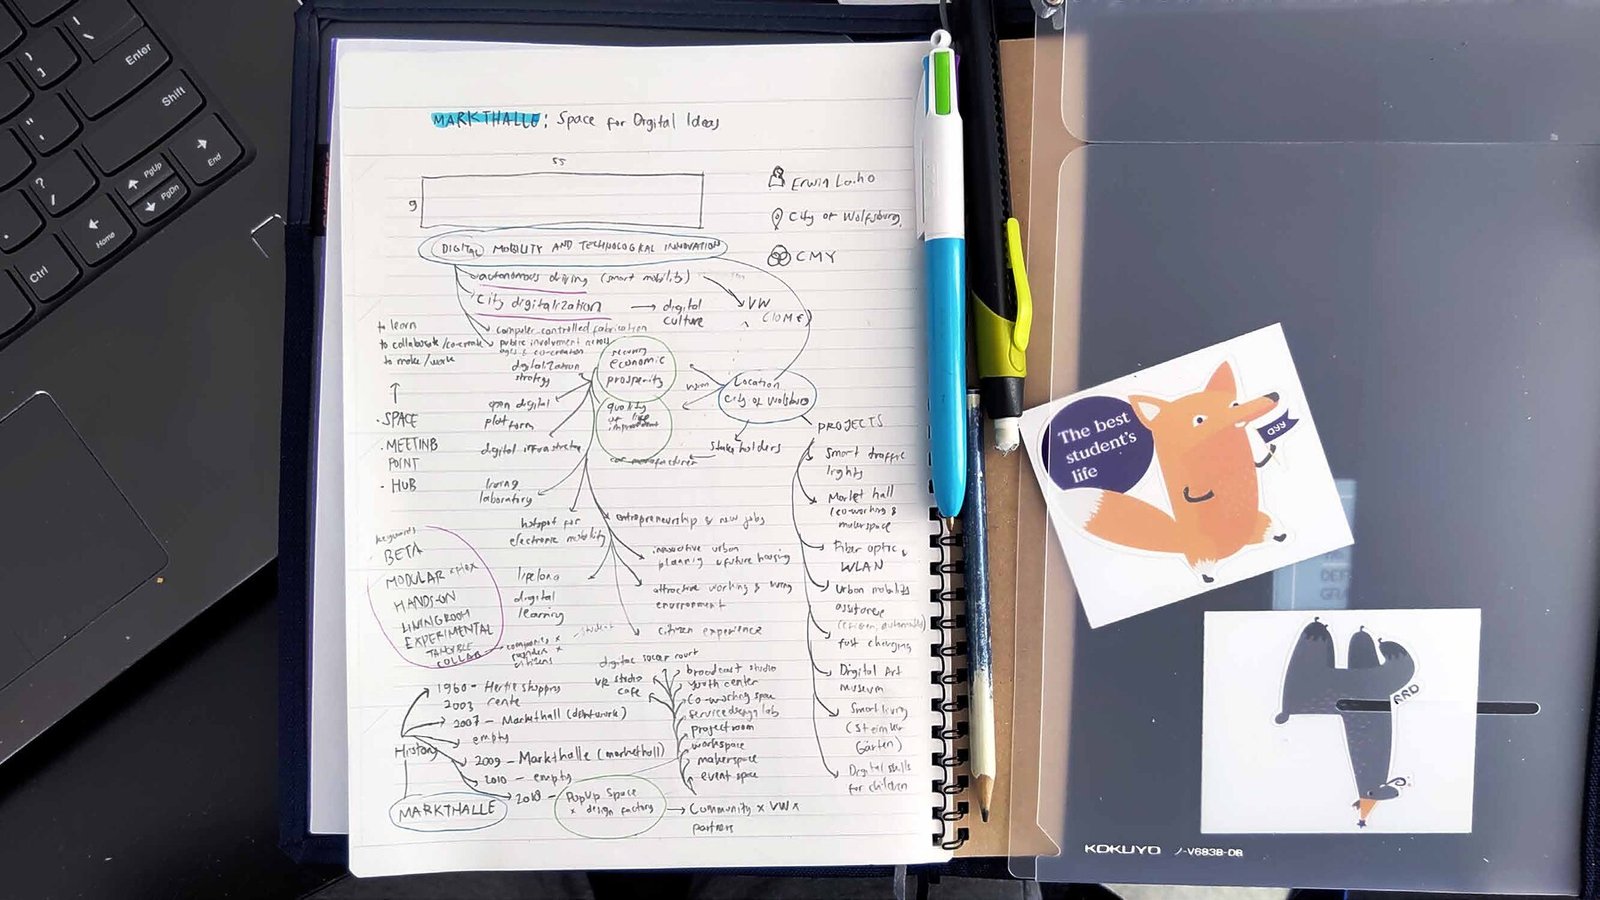 Enter
Shift
End
PgUp
PgDn
Home
Ctrl
?
/
MARKTHALLE: Space for Digital Ideas
55
9
Erwin
City of Wolfsburg
CMY
DIGITAL MOBILITY AND TECHNOLOGICAL INNOVATION
autonomous driving (smart mobility)
City digitalization → digital
culture
VW
computer-controlled fabrication
public involvement across
ages & co-creation
to learn
to collaborate/co-create
to make/work
SPACE
MEETING
POINT
HUB
digitalization
strategy
open digital
platform
digital infrastructure
living
laboratory
hotspot for
electronic mobility
lifelong
digital
learning
economic
prosperity
quality
of life
improvement
Location
City of Wolfsburg
vision
stakeholders
car manufacturer
entrepreneurship & new jobs
innovative urban
planning & future housing
attractive working & living
environment
citizen experience
PROJECTS
Smart traffic
lights
Market hall
(co-working &
makerspace
Fiber optic &
WLAN
Urban mobility
assistance
(citizen, automobile)
fast charging
Digital Art
museum
Smart living
(Steimker
Gärten)
Digital skills
for children
keywords
BETA
MODULAR x flex
HANDS-ON
LIVINGROOM
EXPERIMENTAL
TANGIBLE
COLLAB
companies x
x
citizens
student
digital soccer court
VR studio
cafe
broadcast studio
youth center
co-working space
service design lab
project room
workspace
makerspace
event space
History
1960 - Hertie shopping
2003
2007 - Markthall
empty
2009 - Markthalle (markethall)
2010 - empty
2018 - PopUp Space
x design factory
→ Community x VW x
partners
MARKTHALLE
The best
student's
life
ayy
RRD
KOKUYO ノ-V683B-DB